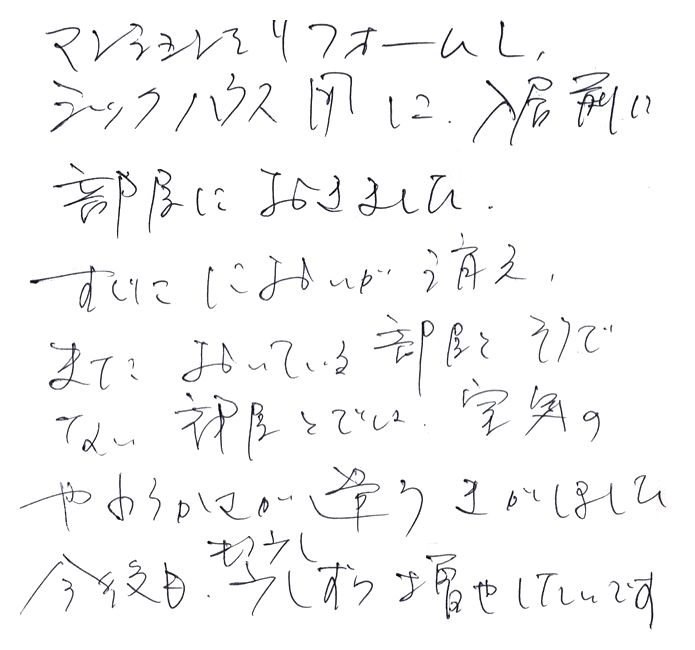 マンションをリフォームし、
シックハウス用に、入居前に
部屋におきました。
すぐににおいが消え、
また おいている部屋と そうで
ない 部屋とでは、空気の
やわらかさが違うきがしました
もう少し
今後も、少しずつ増やしたいです